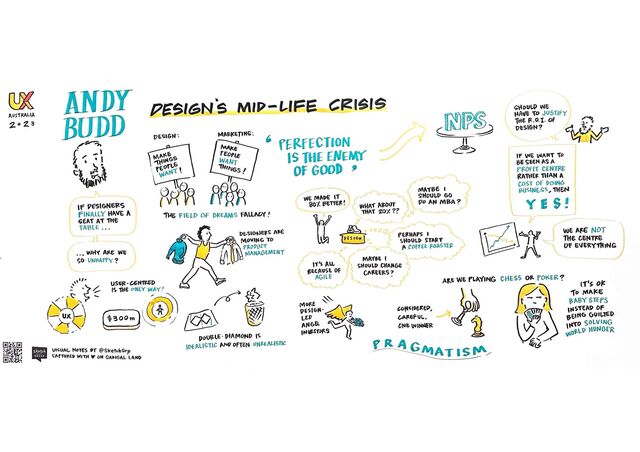 UX
AUSTRALIA
2023
ANDY
BUDD
DESIGN'S MID-LIFE CRISIS
IF DESIGNERS
FINALLY HAVE A
SEAT AT THE
TABLE...
...WHY ARE WE
SO UNHAPPY?
DESIGN:
MAKE
THINGS
PEOPLE
WANT!
MARKETING:
MAKE
PEOPLE
WANT
THINGS!
THE FIELD OF DREAMS FALLACY!
DESIGNERS ARE
MOVING TO
PRODUCT
MANAGEMENT
USER-CENTRED
IS THE ONLY WAY!
UX
$300m
DOUBLE-DIAMOND IS
IDEALISTIC AND OFTEN UNREALISTIC
'PERFECTION
IS THE ENEMY
OF GOOD'
WE MADE IT
80% BETTER!
WHAT ABOUT
THAT 20%??
MAYBE I
SHOULD GO
DO AN MBA?
DESIGN
PERHAPS I
SHOULD START
A COFFEE ROASTER
IT'S ALL
BECAUSE OF
AGILE
MAYBE I
SHOULD CHANGE
CAREERS?
MORE
DESIGN-
LED
ANGEL
INVESTORS
CONSIDERED,
CAREFUL,
ONE WINNER
PRAGMATISM
NPS
SHOULD WE
HAVE TO JUSTIFY
THE R.O.I. OF
DESIGN?
IF WE WANT TO
BE SEEN AS A
PROFIT CENTRE
RATHER THAN A
COST OF DOING
BUSINESS, THEN
YES!
WE ARE NOT
THE CENTRE
OF EVERYTHING
ARE WE PLAYING CHESS OR POKER?
IT'S OK
TO MAKE
BABY STEPS
INSTEAD OF
BEING GUILTED
INTO SOLVING
WORLD HUNGER
VISUAL NOTES BY @SketchGrp
CAPTURED WITH ♥ ON GADIGAL LAND